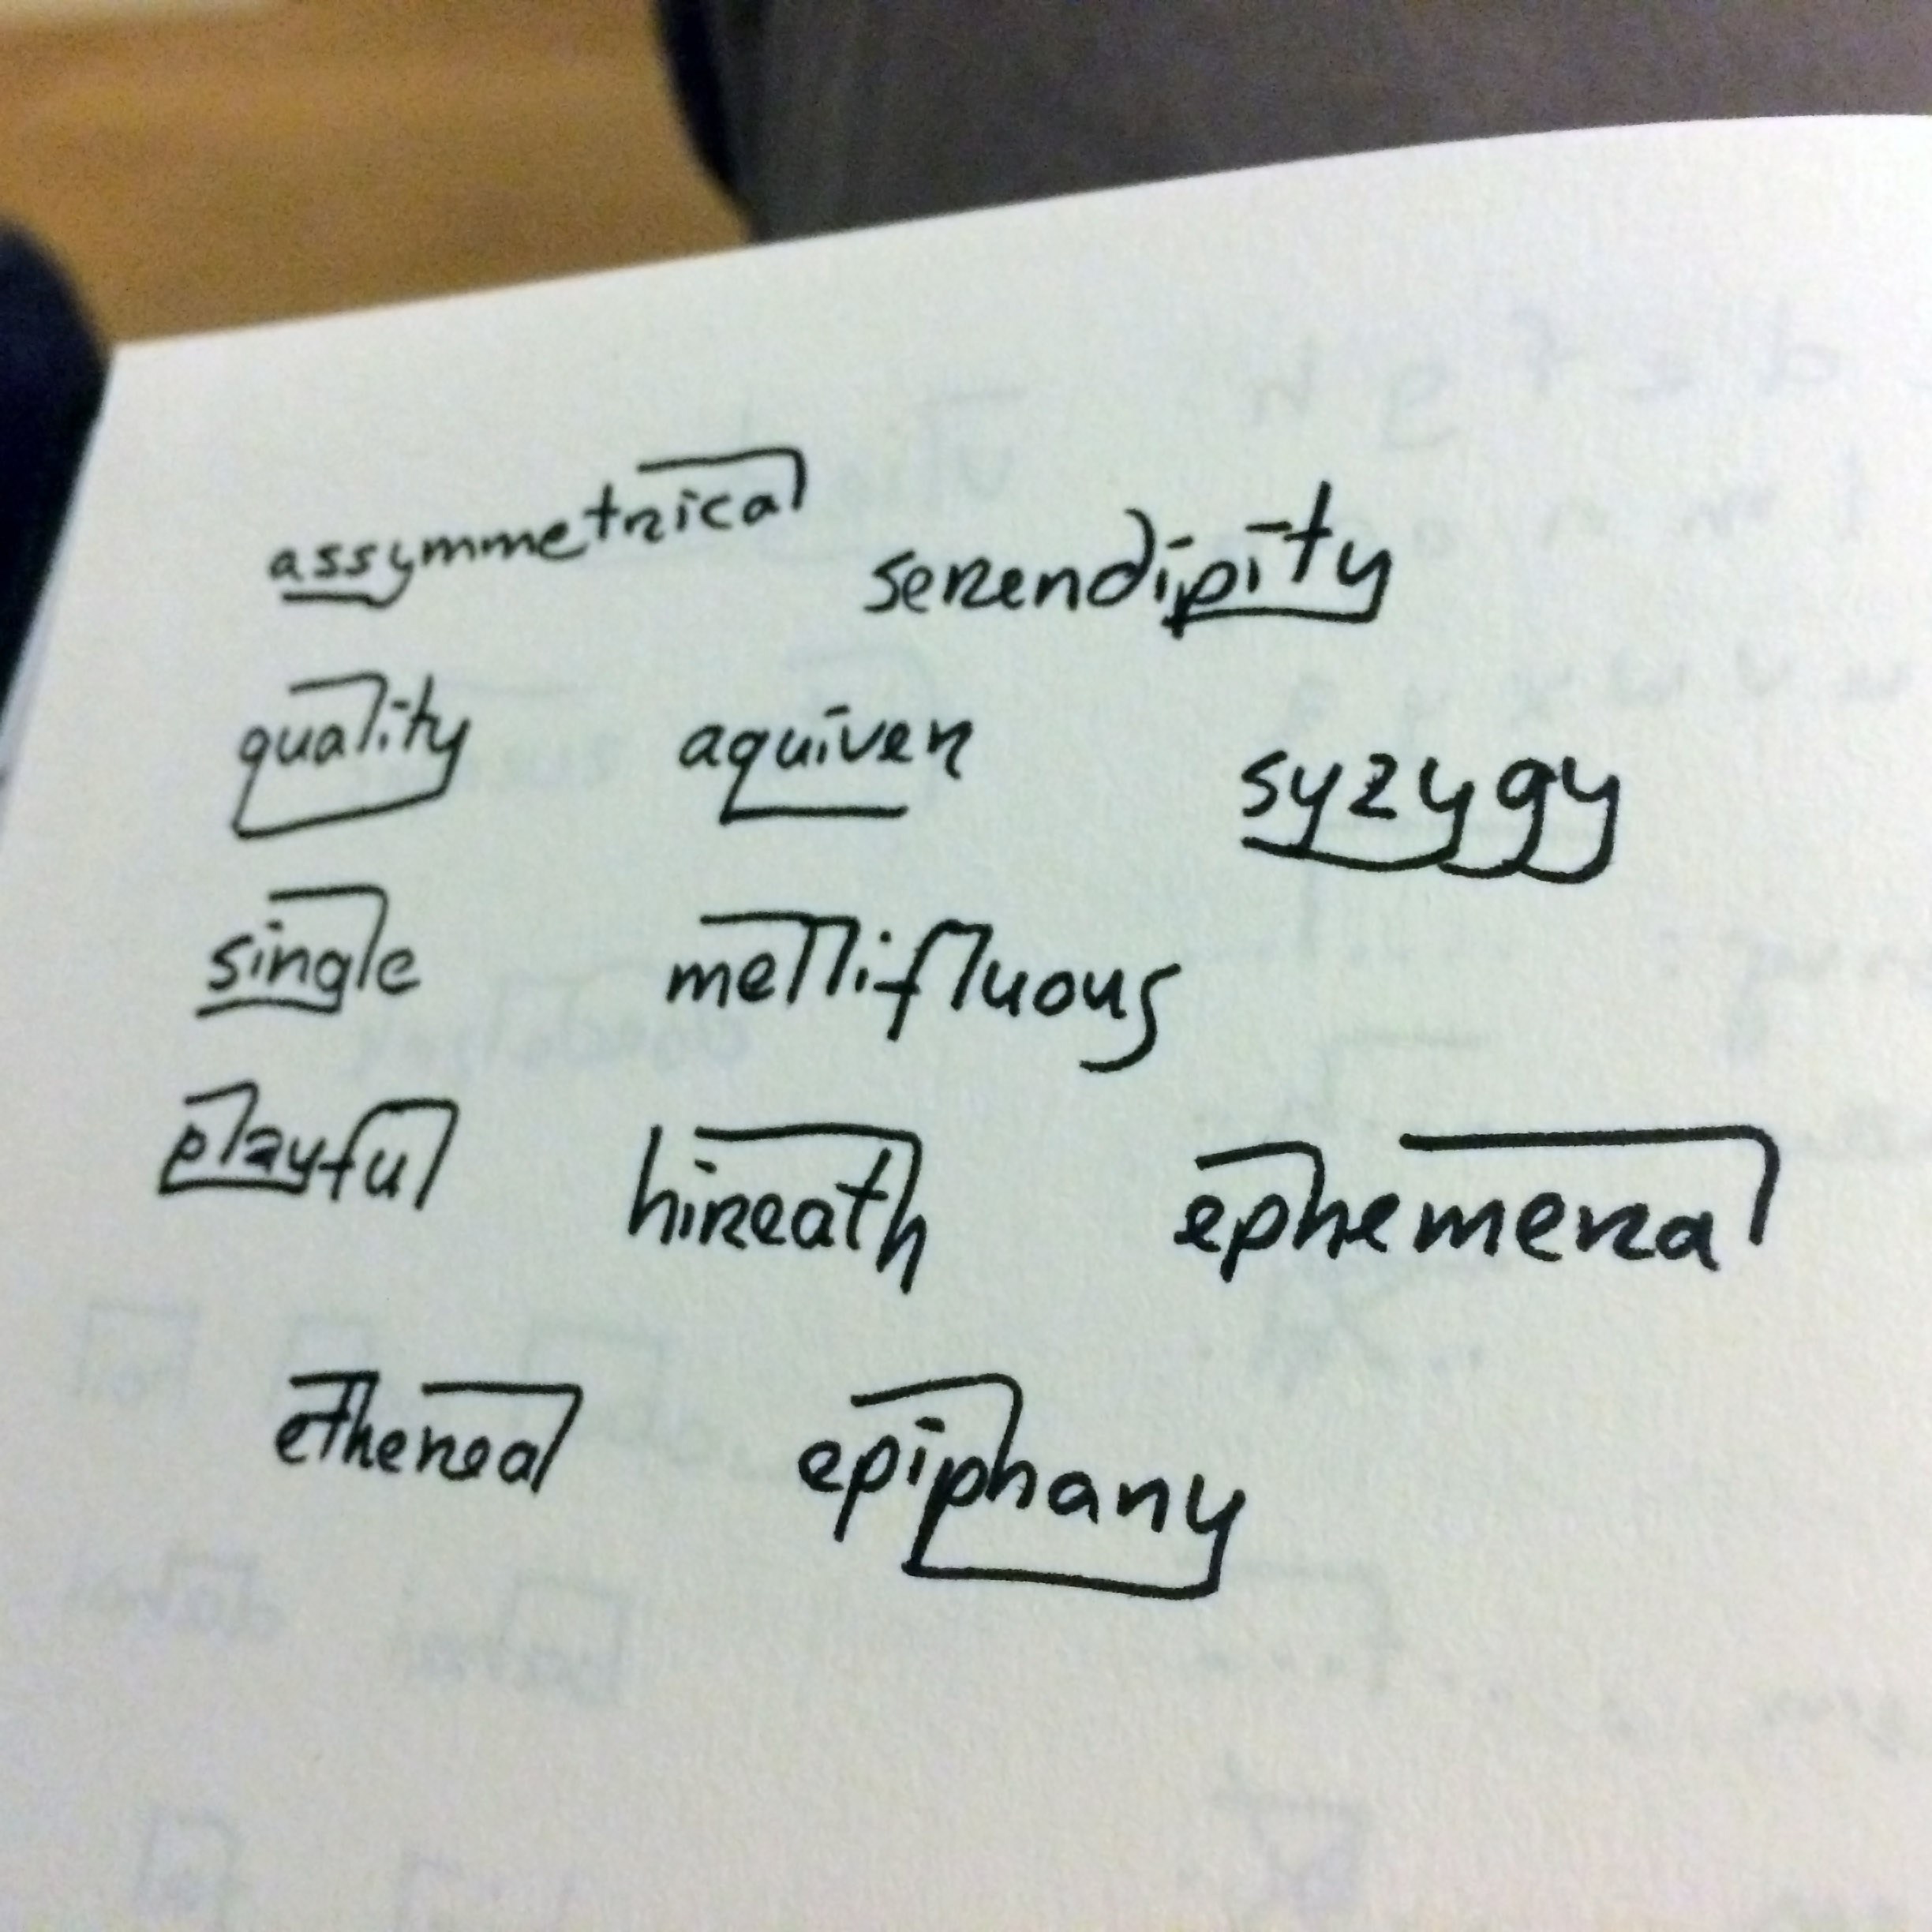 assymmetrical serendipity
quality aquiver syzygy
single mellifluous
playful hireath ephemeral
ethereal epiphany